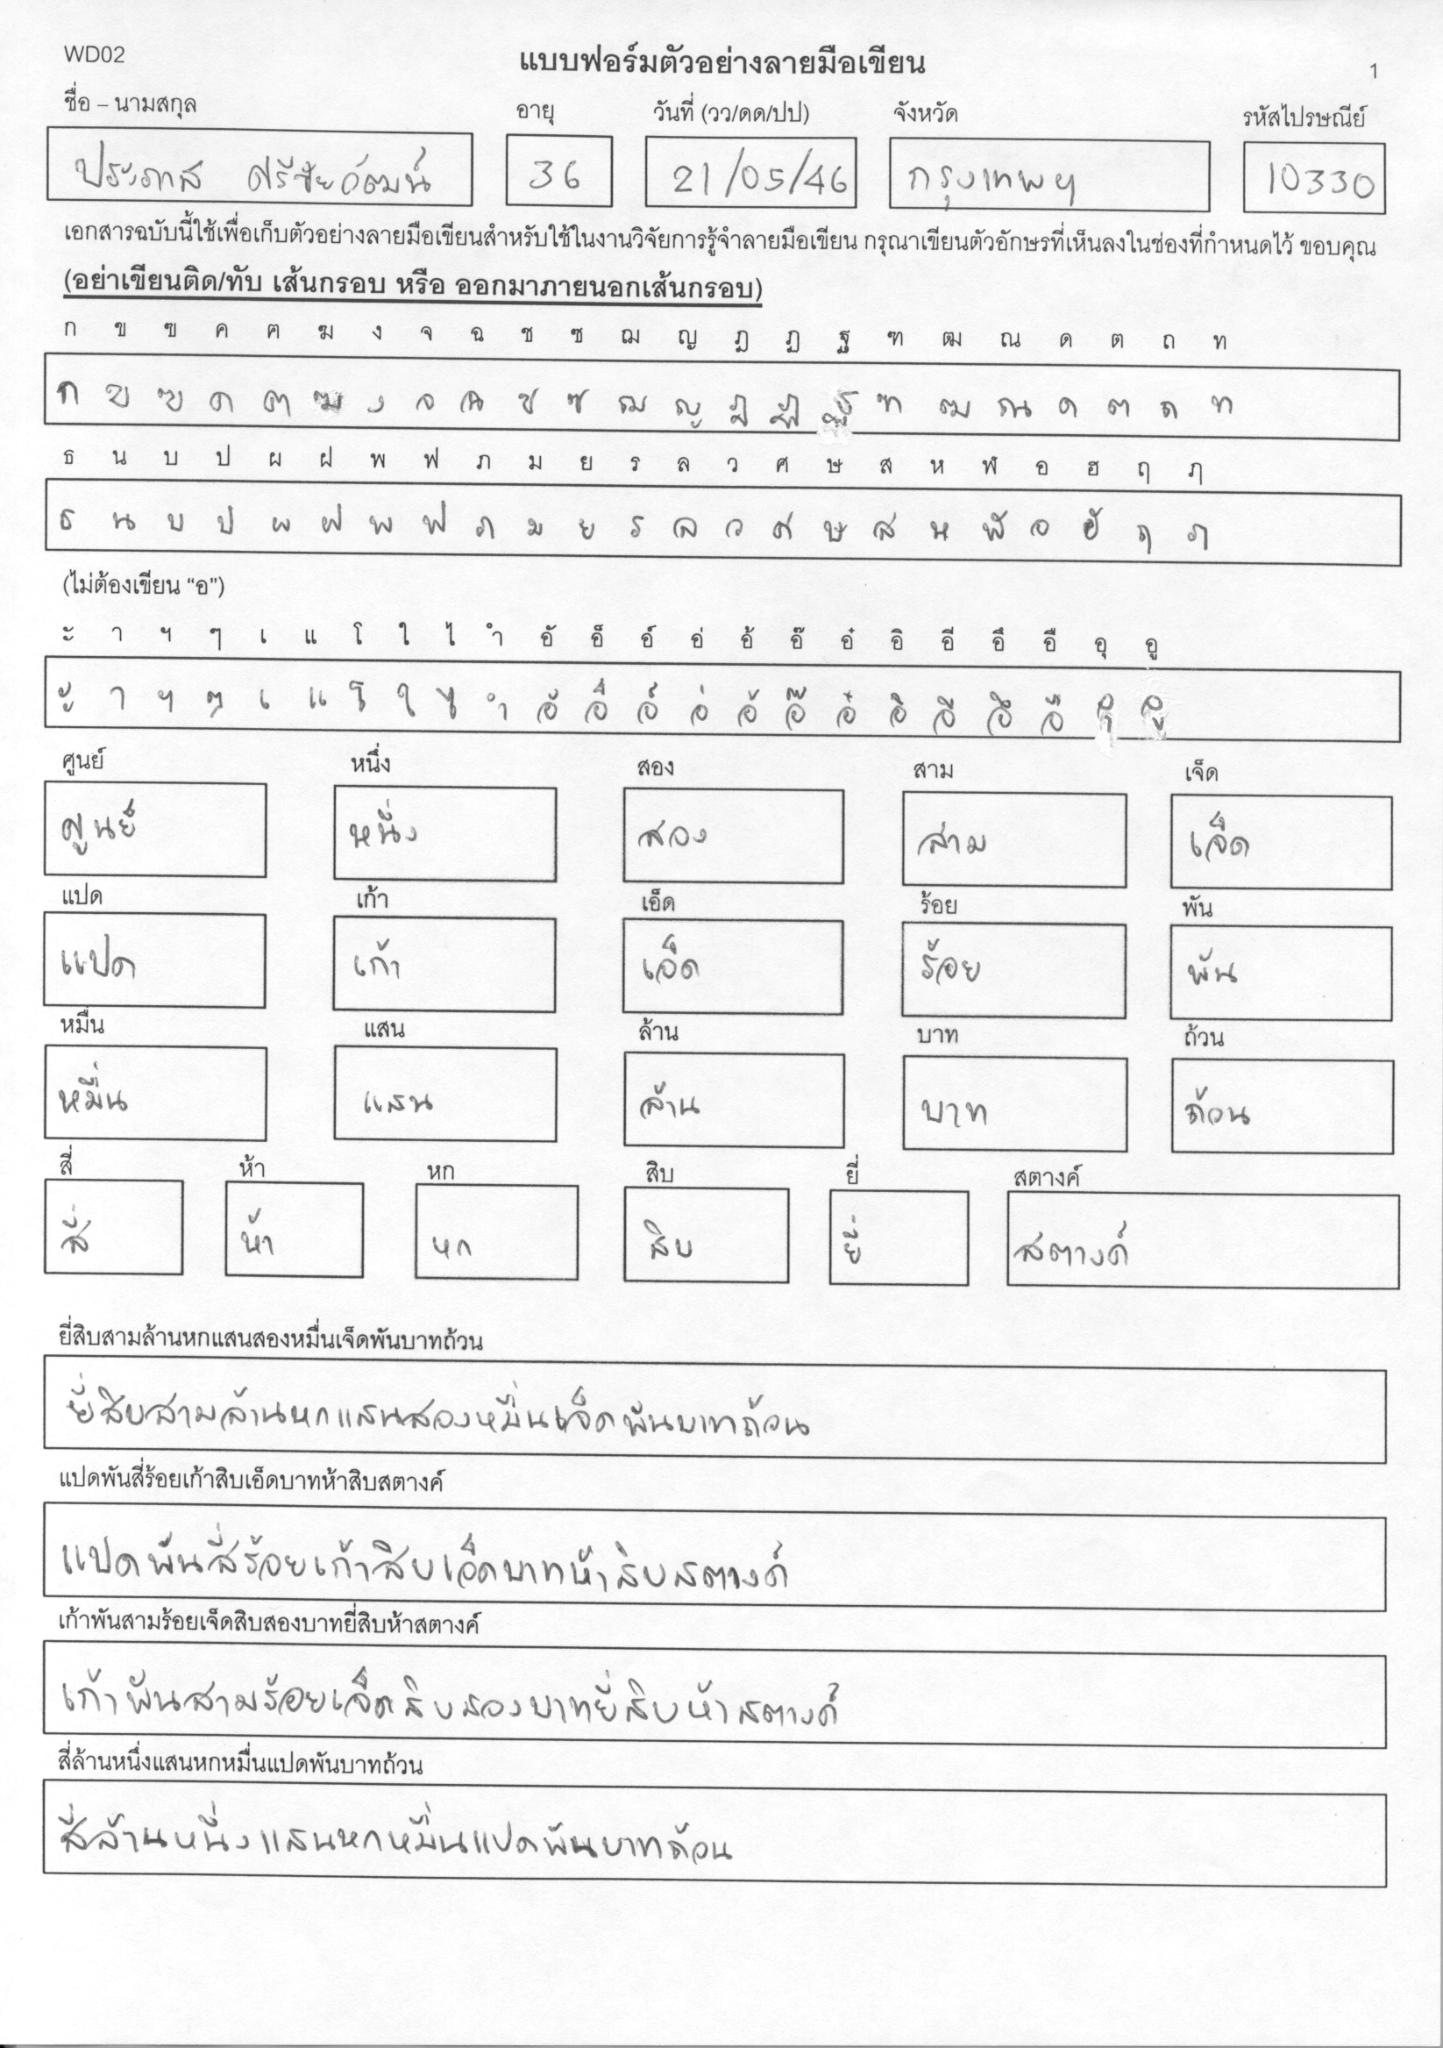 WD02 แบบฟอร์มตัวอย่างลายมือเขียน 1
ชื่อ – นามสกุล อายุ วันที่ (วว/ดด/ปป) จังหวัด รหัสไปรษณีย์
ประภาส ศรีชัยวัฒน์ 36 21/05/46 กรุงเทพฯ 10330
เอกสารฉบับนี้ใช้เพื่อเก็บตัวอย่างลายมือเขียนสำหรับใช้ในงานวิจัยการรู้จำลายมือเขียน กรุณาเขียนตัวอักษรที่เห็นลงในช่องที่กำหนดไว้ ขอบคุณ
(อย่าเขียนติด/ทับ เส้นกรอบ หรือ ออกมาภายนอกเส้นกรอบ)
ก ข ฃ ค ฅ ฆ ง จ ฉ ช ซ ฌ ญ ฎ ฏ ฐ ฑ ฒ ณ ด ต ถ ท
ก ข ฃ ค ฅ ฆ ง จ ฉ ช ซ ฌ ญ ฎ ฏ ฐ ฑ ฒ ณ ด ต ถ ท
ธ น บ ป ผ ฝ พ ฟ ภ ม ย ร ล ว ศ ษ ส ห ฬ อ ฮ ฤ ฦ
ธ น บ ป ผ ฝ พ ฟ ภ ม ย ร ล ว ศ ษ ส ห ฬ อ ฮ ฤ ฦ
(ไม่ต้องเขียน “อ”)
ะ า ฯ ๆ เ แ โ ใ ไ ำ อั อ็ อ์ อ่ อ้ อ๊ อ๋ อิ อี อึ อื อุ อู
ะ า ฯ ๆ เ แ โ ใ ไ ำ อั อ็ อ์ อ่ อ้ อ๊ อ๋ อิ อี อึ อื อุ อู
ศูนย์ หนึ่ง สอง สาม เจ็ด
ศูนย์ หนึ่ง สอง สาม เจ็ด
แปด เก้า เอ็ด ร้อย พัน
แปด เก้า เอ็ด ร้อย พัน
หมื่น แสน ล้าน บาท ถ้วน
หมื่น แสน ล้าน บาท ถ้วน
สี่ ห้า หก สิบ ยี่ สตางค์
สี่ ห้า หก สิบ ยี่ สตางค์
ยี่สิบสามล้านหกแสนสองหมื่นเจ็ดพันบาทถ้วน
ยี่สิบสามล้านหกแสนสองหมื่นเจ็ดพันบาทถ้วน
แปดพันสี่ร้อยเก้าสิบเอ็ดบาทห้าสิบสตางค์
แปดพันสี่ร้อยเก้าสิบเอ็ดบาทห้าสิบสตางค์
เก้าพันสามร้อยเจ็ดสิบสองบาทยี่สิบห้าสตางค์
เก้าพันสามร้อยเจ็ดสิบสองบาทยี่สิบห้าสตางค์
สี่ล้านหนึ่งแสนหกหมื่นแปดพันบาทถ้วน
สี่ล้านหนึ่งแสนหกหมื่นแปดพันบาทถ้วน